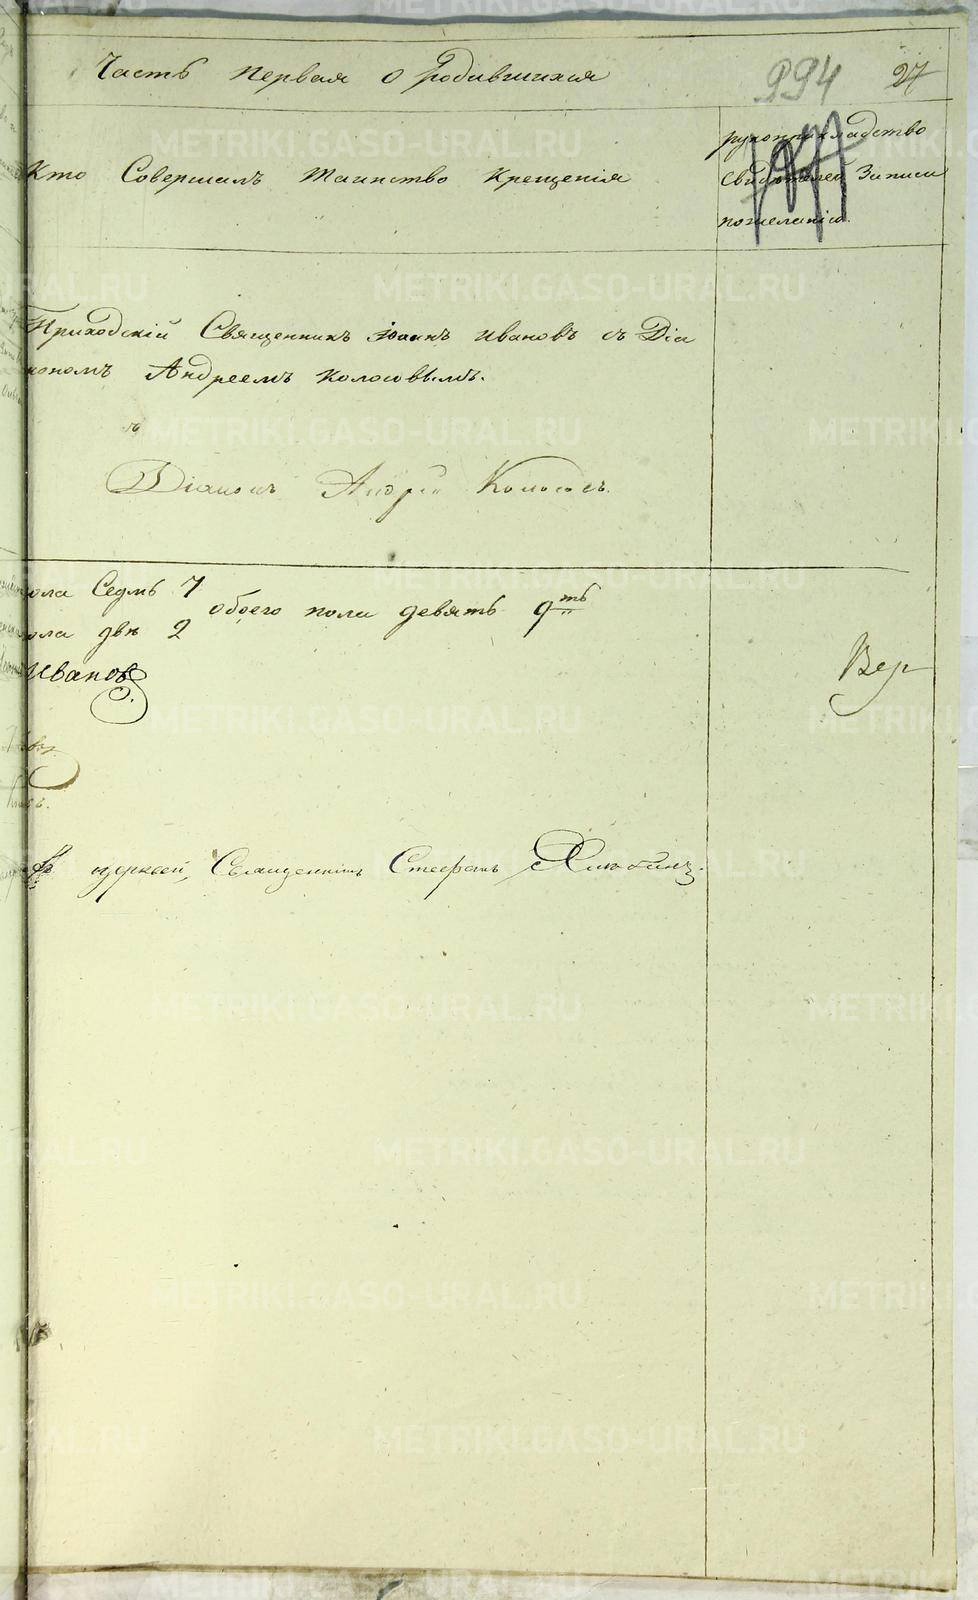 Часть Первая о родившихся 994 27
Кто Совершалъ Таинство Крещенія
рукоприкладство
свидѣтелей Записи
пожеланію.
Приходскій Священникъ Іоаннъ Ивановъ съ Діа
кономъ Андреемъ Колосовымъ.
Діаконъ Андрей Колосовъ.
ола Седмь 7
обоего пола девять 9ть
ола двѣ 2
Ивановъ
Вер
церквей, Священникъ Стефанъ Хлыбинъ.
METRIKI.GASO-URAL.RU